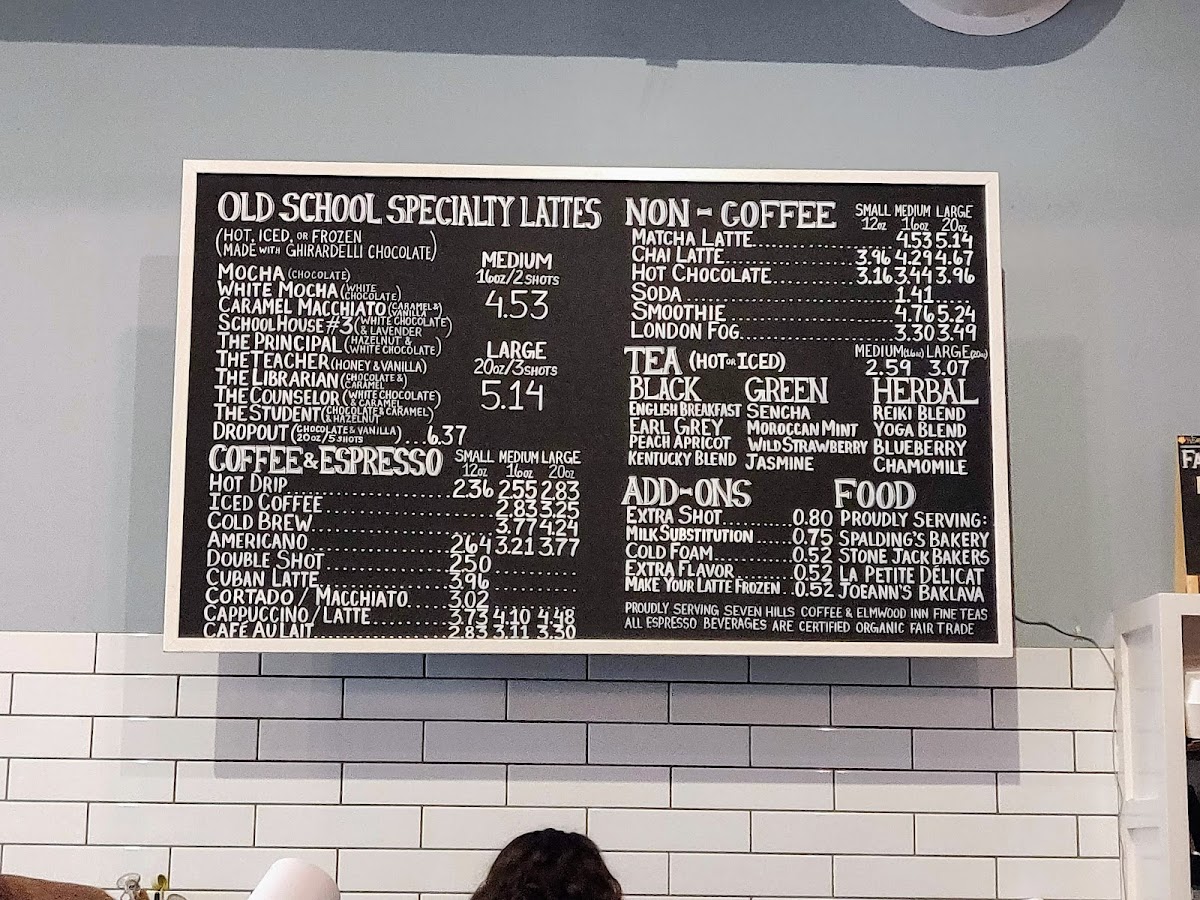 OLD SCHOOL SPECIALTY LATTES
(HOT, ICED, OR FROZEN
MADE WITH GHIRARDELLI CHOCOLATE)
MOCHA (CHOCOLATE)
WHITE MOCHA (WHITE CHOCOLATE)
CARAMEL MACCHIATO (CARAMEL & VANILLA)
SCHOOLHOUSE #3 (WHITE CHOCOLATE & LAVENDER)
THE PRINCIPAL (HAZELNUT & WHITE CHOCOLATE)
THE TEACHER (HONEY & VANILLA)
THE LIBRARIAN (CHOCOLATE & CARAMEL)
THE COUNSELOR (WHITE CHOCOLATE & CARAMEL)
THE STUDENT (CHOCOLATE & CARAMEL & HAZELNUT)
DROPOUT (CHOCOLATE & VANILLA 20oz/5 SHOTS) ...6.37
MEDIUM
16oz/2 SHOTS
4.53
LARGE
20oz/3 SHOTS
5.14
COFFEE & ESPRESSO
SMALL MEDIUM LARGE
12oz 16oz 20oz
HOT DRIP 2.36 2.55 2.83
ICED COFFEE 2.83 3.25
COLD BREW 3.77 4.24
AMERICANO 2.64 3.21 3.77
DOUBLE SHOT 2.50
CUBAN LATTE 3.96
CORTADO / MACCHIATO 3.02
CAPPUCCINO / LATTE 3.73 4.10 4.48
CAFÉ AU LAIT 2.83 3.11 3.30
NON-COFFEE
SMALL MEDIUM LARGE
12oz 16oz 20oz
MATCHA LATTE 4.53 5.14
CHAI LATTE 3.96 4.29 4.67
HOT CHOCOLATE 3.16 3.44 3.96
SODA 1.41
SMOOTHIE 4.76 5.24
LONDON FOG 3.30 3.49
TEA (HOT OR ICED)
MEDIUM (16oz) LARGE (20oz)
2.59 3.07
BLACK
ENGLISH BREAKFAST
EARL GREY
PEACH APRICOT
KENTUCKY BLEND
GREEN
SENCHA
MOROCCAN MINT
WILD STRAWBERRY
JASMINE
HERBAL
REIKI BLEND
YOGA BLEND
BLUEBERRY
CHAMOMILE
ADD-ONS
EXTRA SHOT 0.80
MILK SUBSTITUTION 0.75
COLD FOAM 0.52
EXTRA FLAVOR 0.52
MAKE YOUR LATTE FROZEN 0.52
FOOD
PROUDLY SERVING:
SPALDING'S BAKERY
STONE JACK BAKERS
LA PETITE DÉLICAT
JOEANN'S BAKLAVA
PROUDLY SERVING SEVEN HILLS COFFEE & ELMWOOD INN FINE TEAS
ALL ESPRESSO BEVERAGES ARE CERTIFIED ORGANIC FAIR TRADE